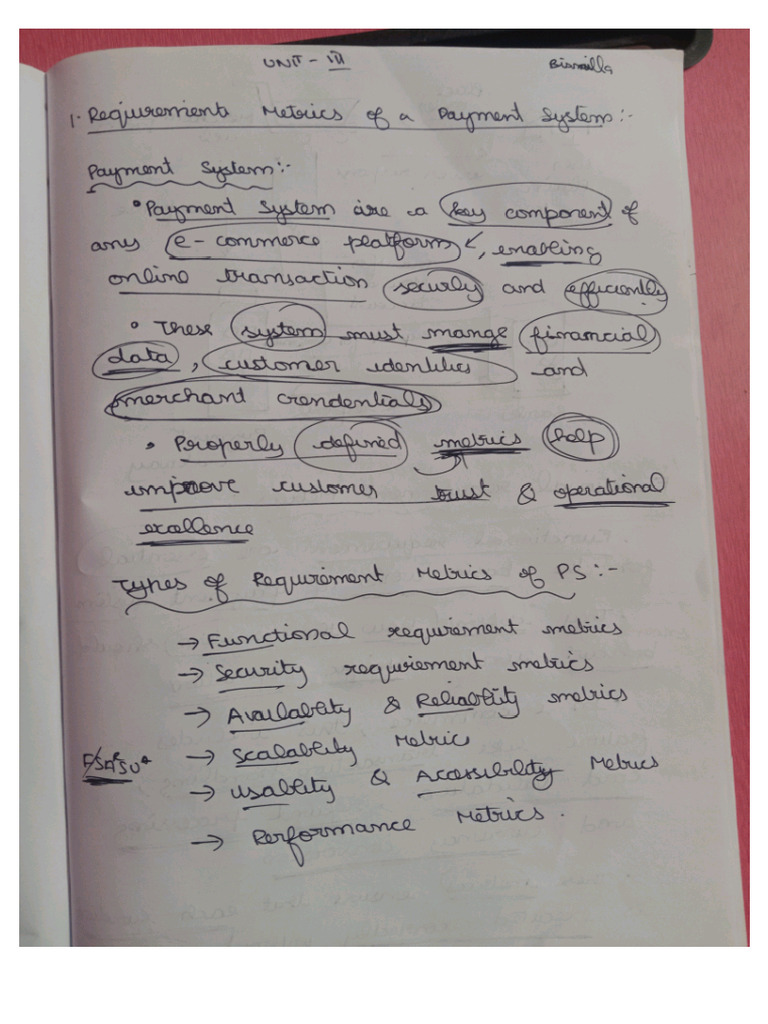 UNIT - III Bismilla
1. Requirements Metrics of a Payment System:-
Payment System:-
• Payment System are a key component of
any e-commerce platform, enabling
online transaction securly and efficiently
• These system must mange financial
data, customer identities and
merchant crendentials
• Properly defined metrics help
improve customer trust & operational
excellence
Types of Requirement Metrics of PS:-
→ Functional requirement metrics
→ Security requirement metrics
→ Availability & Reliability metrics
→ Scalability Metric
→ Usability & Accessibility Metrics
→ Performance Metrics.